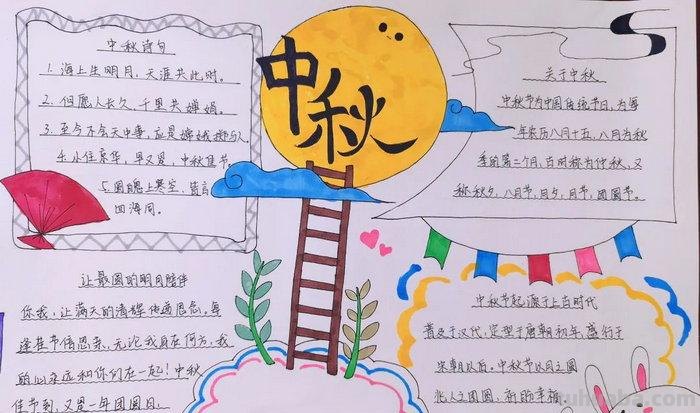 中秋诗句
1. 海上生明月，天涯共此时。
2. 但愿人长久，千里共婵娟。
3. 至今不会天中事，应是嫦娥掷与人
4. 小住京华，早又是，中秋佳节。
5. 圆魄上寒空，皆言
四海同。
中秋
关于中秋
中秋节为中国传统节日，为每
年农历八月十五，八月为秋
季的第二个月，古时称为仲秋，又
称秋夕，八月节，月夕，月节，团圆节。
让最圆的明月陪伴
你我，让满天的清辉传递思念。每
逢佳节倍思亲，无论我身在何方，我
的心永远和你们在一起！中秋
佳节到，又是一年团圆日
中秋节起源于上古时代
普及于汉代，定型于唐朝初年，盛行于
宋朝以后。中秋节以月之圆
兆人之团圆，
幸福